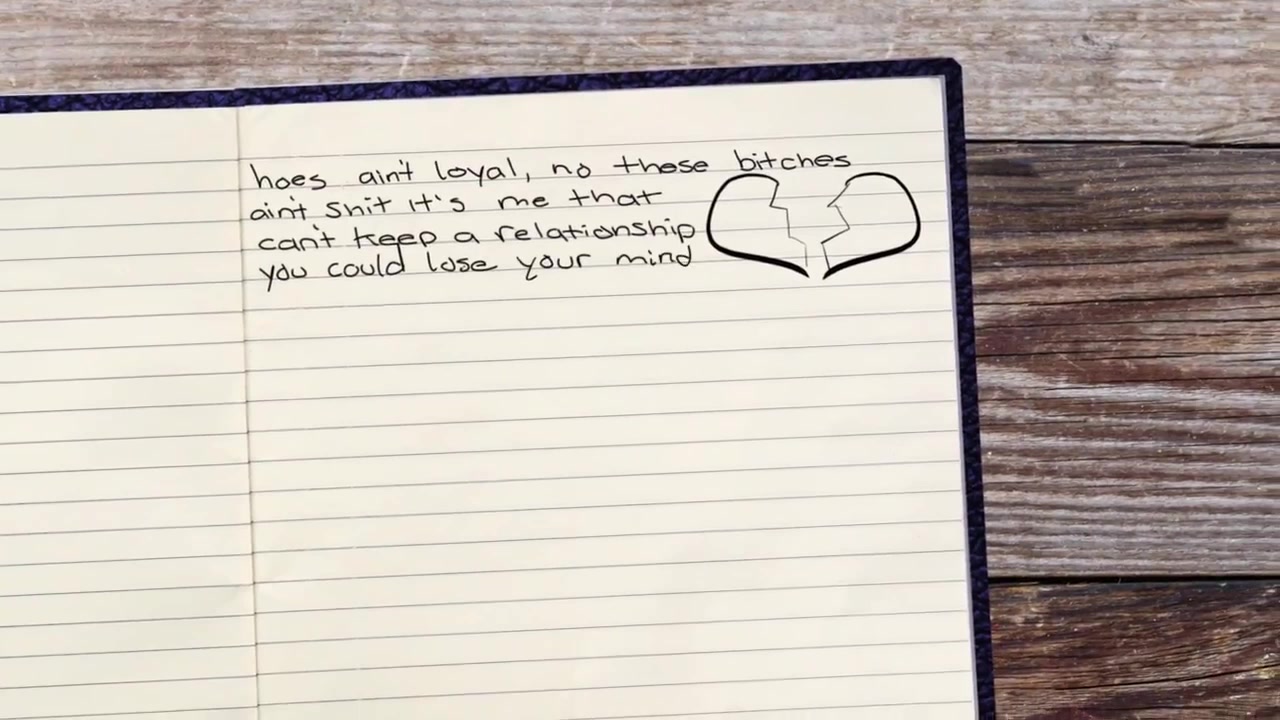 hoes ain't loyal, no these bitches
ain't shit it's me that
can't keep a relationship
you could lose your mind